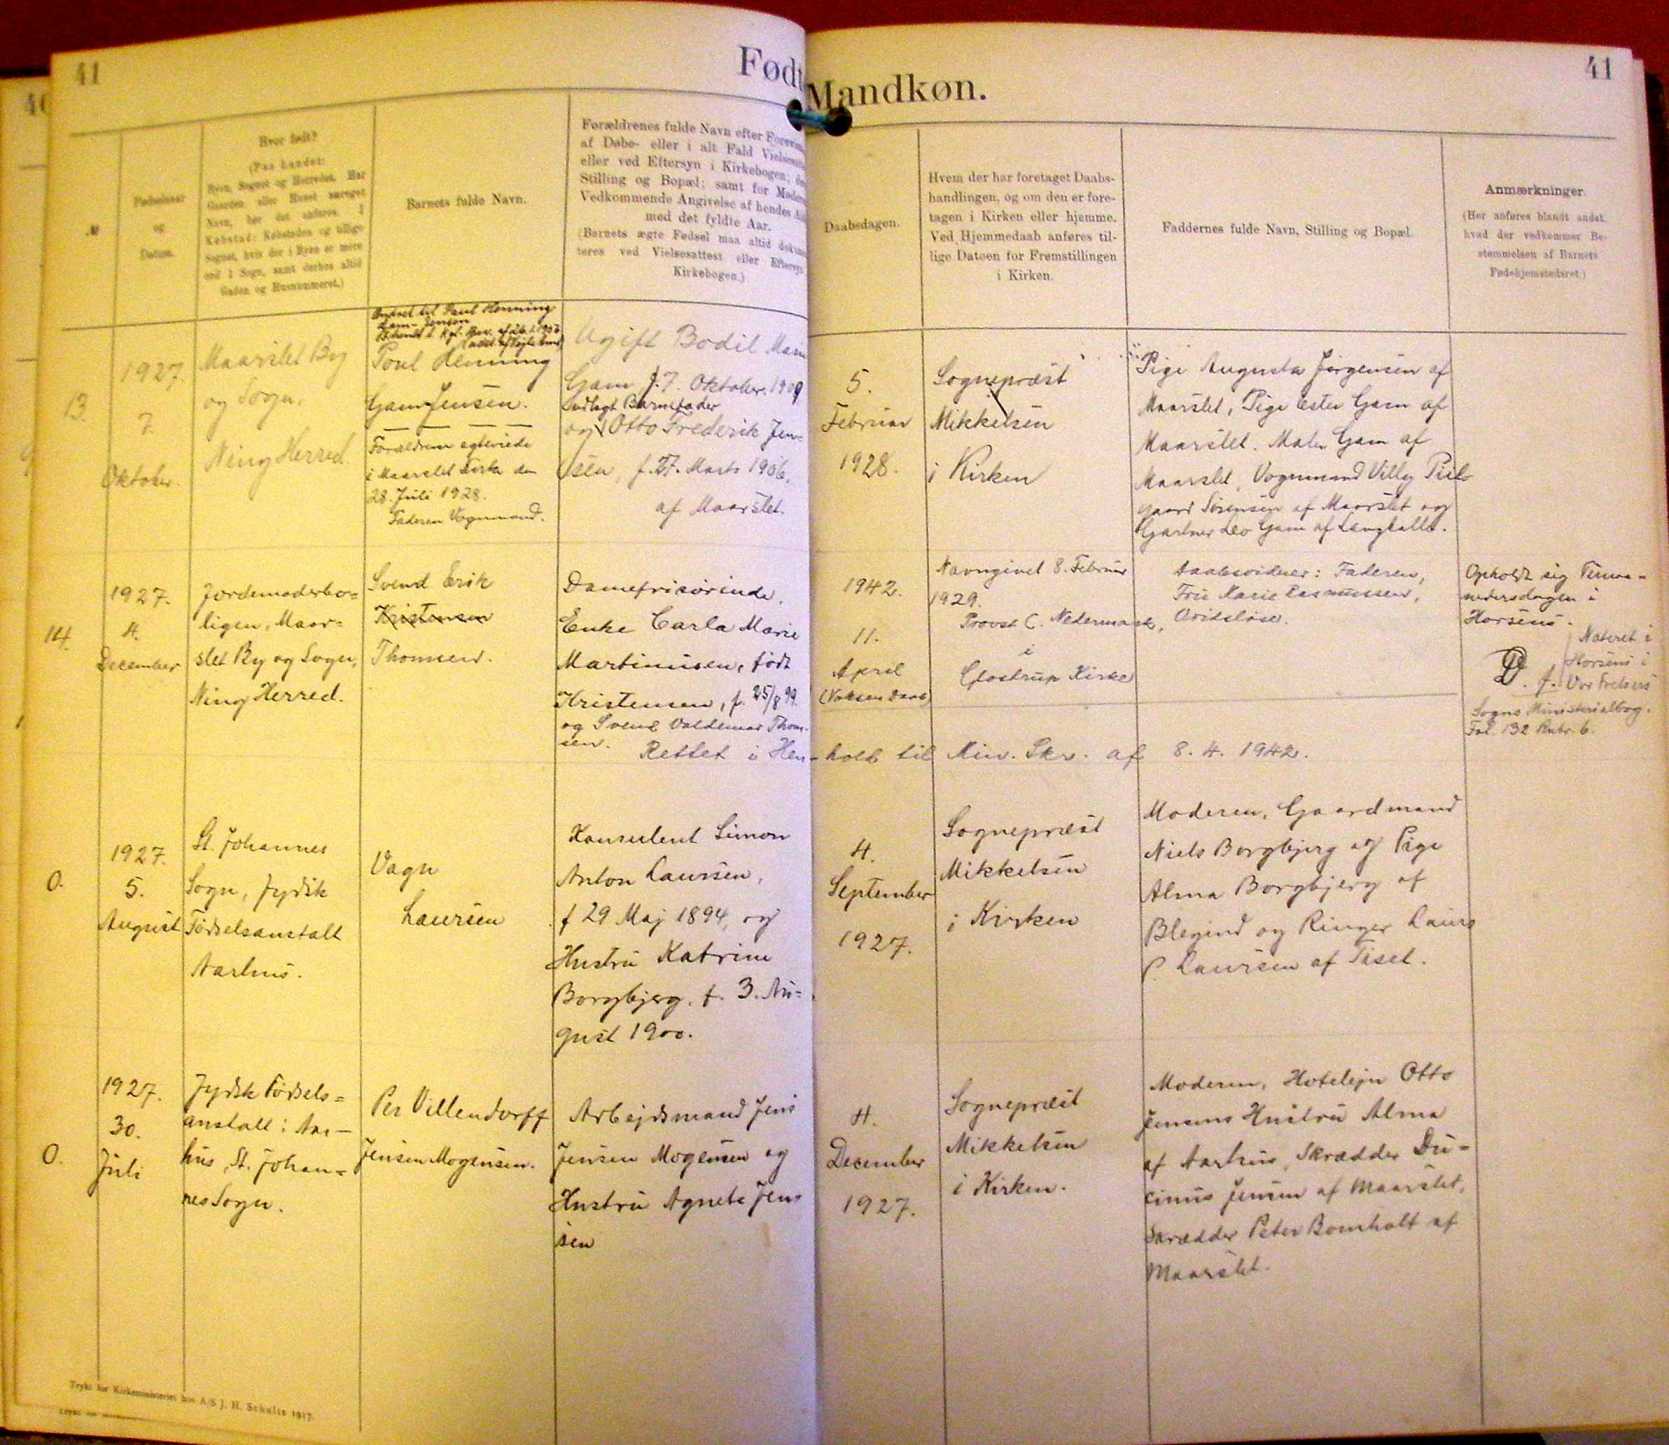 41
Født
Mandkøn.
41
№
Fødselsaar
og
Datum.
Hvor født?
(Paa Landet:
Byen, Sognet og Herredet. Har
Gaarden eller Huset særeget
Navn, bør det anføres. I
Købstad: Købstaden og tillige
Sognet, hvis der i Byen er mere
end 1 Sogn, samt derhos altid
Gaden og Husnummeret.)
Barnets fulde Navn.
Forældrenes fulde Navn efter
af Døbe- eller i alt Fald
eller ved Eftersyn i Kirkebogen;
Stilling og Bopæl; samt for
Vedkommende Angivelse af hendes
med det fyldte Aar.
(Barnets ægte Fødsel maa altid
teres ved Vielsesattest eller Eftersyn
Kirkebogen.)
Daabsdagen.
Hvem der har foretaget Daabs-
handlingen, og om den er fore-
tagen i Kirken eller hjemme.
Ved Hjemmedaab anføres til-
lige Datoen for Fremstillingen
i Kirken.
Faddernes fulde Navn, Stilling og Bopæl.
Anmærkninger.
(Her anføres blandt andet,
hvad der vedkommer Be-
stemmelsen af Barnets
Fødehjemstedsret.)
13.
1927.
7.
Oktober.
Maarslet By
og Sogn.
Ning Herred.
Ændret til Paul Henning
Gam-Jensen
Poul Henning
Gam Jensen.
Forældrene ægteviede
i Maarslet Kirke den
28. Juli 1928.
Faderen Vognmand.
Ugift Bodil Marie
Gam, f. 7. Oktober 1909
Udlagt Barnefader
og Otto Frederik Jen-
sen, f. 27. Marts 1906,
af Maarslet.
5.
Februar
1928.
Sognepræst
Mikkelsen
i Kirken
Pige Augusta Jørgensen af
Maarslet, Pige Ester Gam af
Maarslet. Maler Gam af
Maarslet, Vognmand Villy Piil-
gaard Sørensen af Maarslet og
Gartner Leo Gam af Langballe.
14.
1927.
4.
December
Jordemoderbo-
ligen, Maar-
slet By og Sogn,
Ning Herred.
Svend Erik
Kristensen
Thomsen.
Damefrisørinde,
Enke Carla Marie
Martinusen, født
Kristensen, f. 25/8 99.
og Svend Valdemar Thom-
sen.
1942.
11.
April
(Voksen Daab)
Navngivet 8. Februar
1929.
Provst C. Nedermark,
i
Glostrup Kirke
Daabsvidner: Faderen,
Fru Marie Rasmussen,
Vridsløse.
Opholdt sig Tima-
nedersdagen i
Horsens.
Noteret i
Horsens i
Vor Frelsers
Sogns Ministerialbog.
Fol. 132 Nr. 6.
Rettet i Hen-hold til Min. Skr. af 8. 4. 1942.
0.
1927.
5.
August
St. Johannes
Sogn, Jydsk
Fødselsanstalt
Aarhus.
Vagn
Laursen
Konsulent Simon
Anton Laursen,
f 29 Maj 1894, og
Hustru Katrine
Borgbjerg, f. 3. Au-
gust 1900.
4.
September
1927.
Sognepræst
Mikkelsen
i Kirken
Moderen, Gaardmand
Niels Borgbjerg og Pige
Alma Borgbjerg af
Blegind og Ringer Laurs
P. Laursen af Tiset.
0.
1927.
30.
Juli
Jydsk Fødsels-
anstalt i Aar-
hus, St. Johan-
nes Sogn.
Per Villendorff
Jensen Mogensen.
Arbejdsmand Jens
Jensen Mogensen og
Hustru Agnete Jen-
sen
4.
December
1927.
Sognepræst
Mikkelsen
i Kirken.
Moderen, Hotelejer Otto
Jensens Hustru Alma
af Aarhus, Skrædder Du-
cinus Jensen af Maarslet,
Skrædder Peter Bomholt af
Maarslet.
Trykt for Kirkeministeriet hos A/S J. H. Schultz 1917.